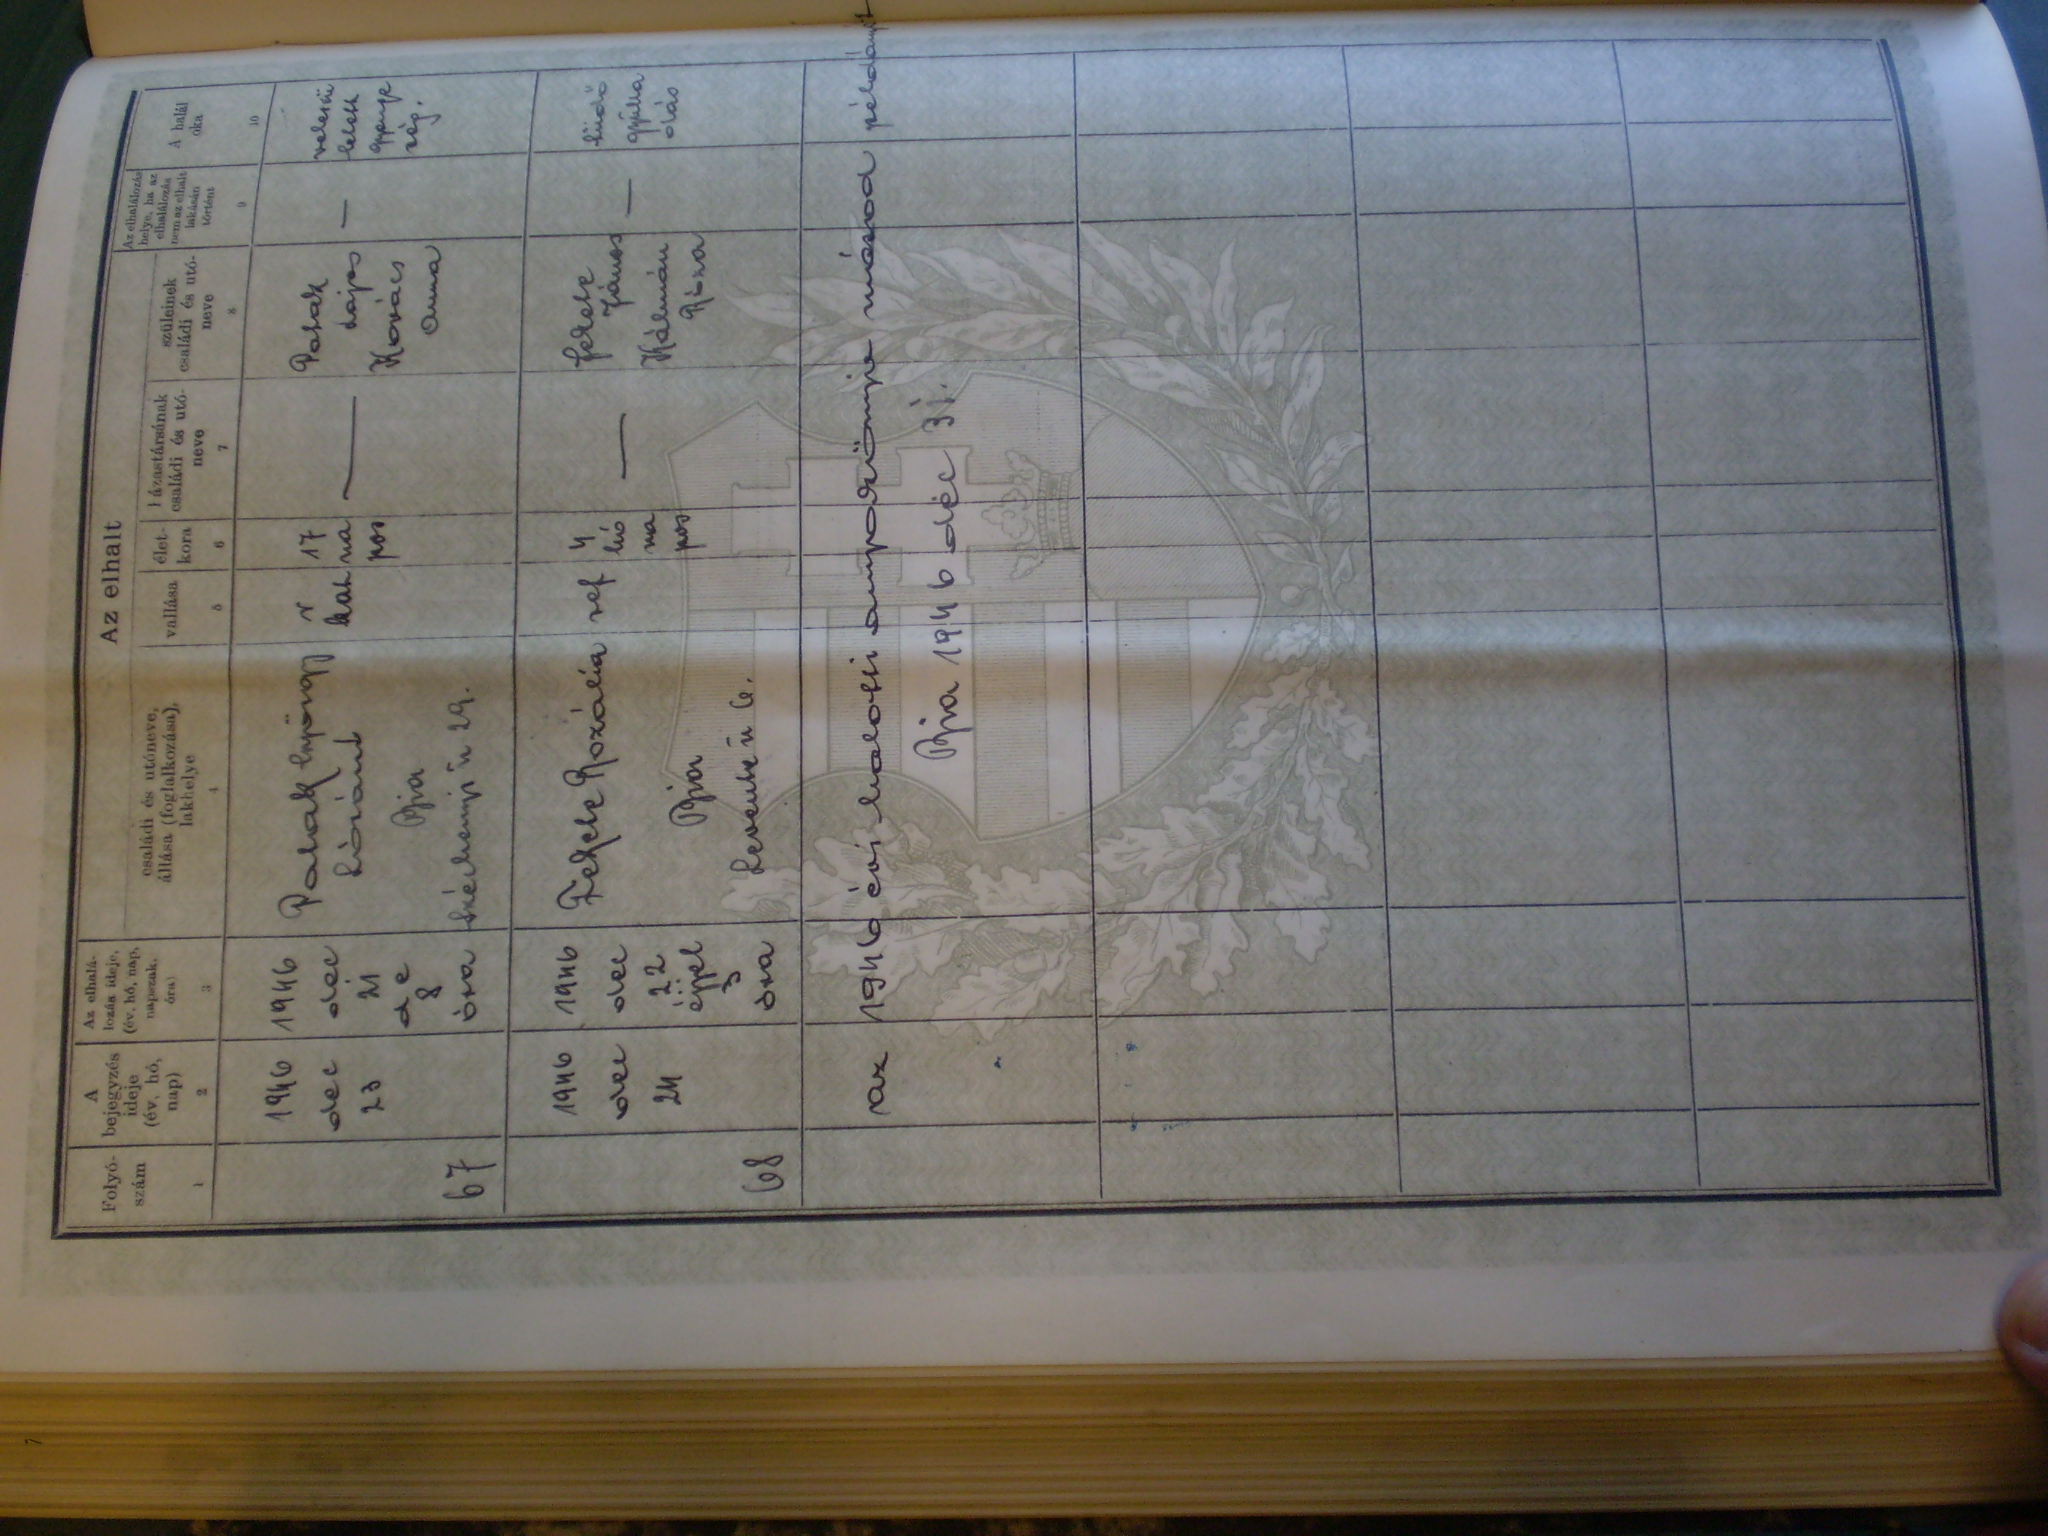 Az elhalt
Folyó-
szám
A
bejegyzés
ideje
(év, hó,
nap)
Az elhalá-
lozás ideje,
(év, hó, nap,
napszak,
óra)
családi és utóneve,
állása (foglalkozása),
lakhelye
vallása
élet-
kora
házastársának
családi és utó-
neve
szüleinek
családi és utó-
neve
Az elhalálozás
helye, ha az
elhalálozás
nem az elhalt
lakásán
történt
A halál
oka
1
2
3
4
5
6
7
8
9
10
67
1946
dec
23
1946
dec
21
d e
8
óra
Patak
Lóránt
Bia
Széchenyi u 29.
r
kath
17
na
pos
—
Patak
Lajos
Kovács
Anna
—
veleszü
letett
gyenge
ség.
68
1946
dec
24
1946
dec
22
éjjel
3
óra
Fekete Rozália
Bia
Levente u 6.
ref
4
hó
na
pos
—
Fekete
János
Kálmán
Rózsa
—
tüdő
gyulla
dás
az 1946 évi halotti anyakönyv másod példányát
Bia 1946 dec 31.